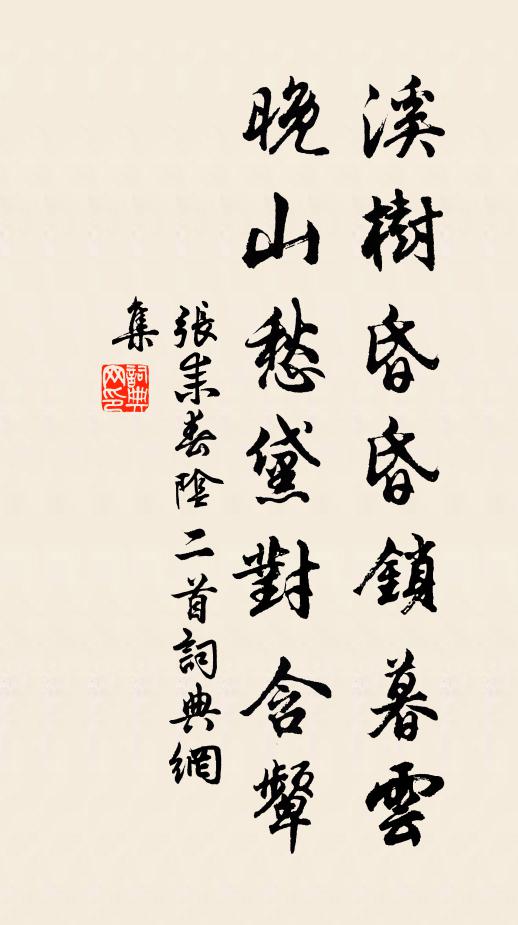 溪樹昏昏鎖暮雲
晚山愁黛對含顰
張耒春陰二首詞典網
集
詞典
网印